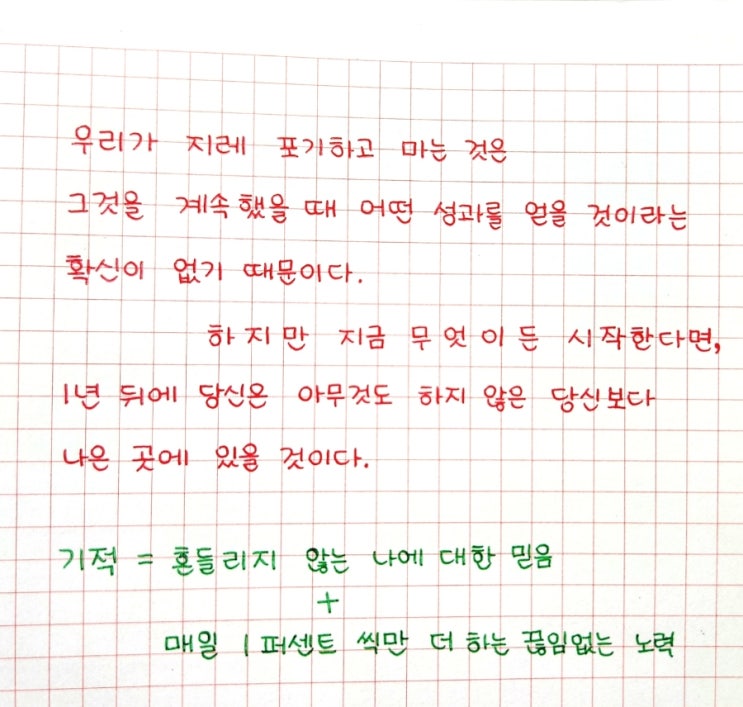 우리가 지레 포기하고 마는 것은
그것을 계속했을 때 어떤 성과를 얻을 것이라는
확신이 없기 때문이다.
하지만 지금 무엇이든 시작한다면,
1년 뒤에 당신은 아무것도 하지 않은 당신보다
나은 곳에 있을 것이다.
기적 = 흔들리지 않는 나에 대한 믿음
+
매일 1퍼센트 씩만 더 하는 끊임없는 노력